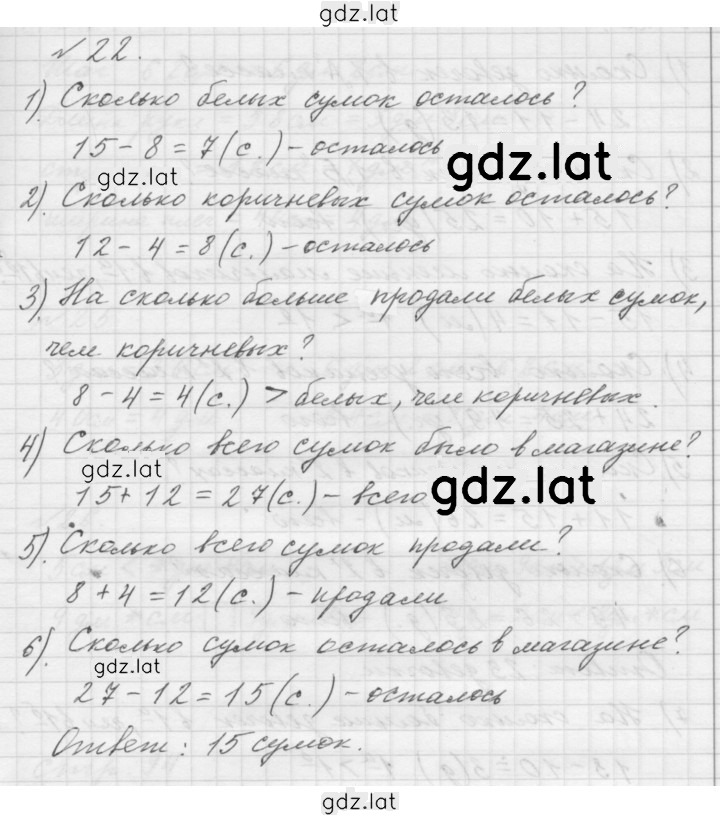 gdz.lat
№ 22.
1) Сколько белых сумок осталось?
15 - 8 = 7 (с.) - осталось
gdz.lat
gdz.lat
2) Сколько коричневых сумок осталось?
12 - 4 = 8 (с.) - осталось
3) На сколько больше продали белых сумок,
чем коричневых?
8 - 4 = 4 (с.) > белых, чем коричневых.
4) Сколько всего сумок было в магазине?
gdz.lat
15 + 12 = 27 (с.) - всего
gdz.lat
5) Сколько всего сумок продали?
8 + 4 = 12 (с.) - продали
6) Сколько сумок осталось в магазине?
gdz.lat
27 - 12 = 15 (с.) - осталось
Ответ: 15 сумок.
gdz.lat